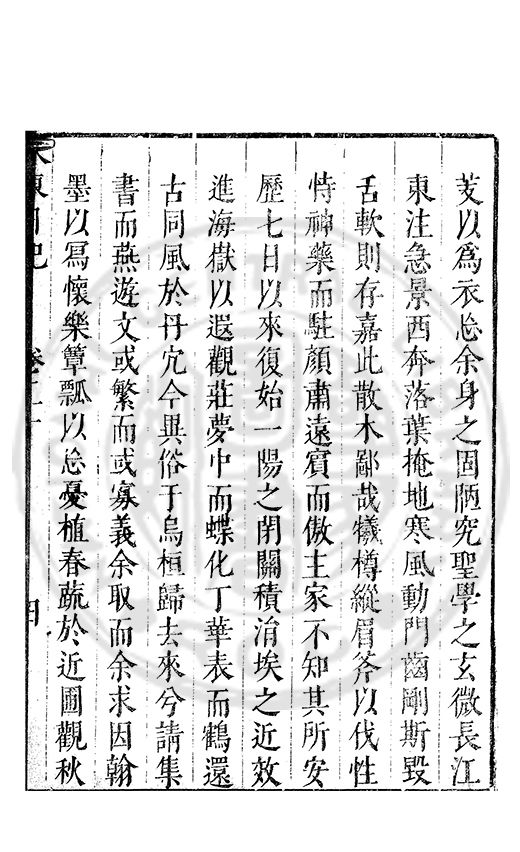 芰以爲衣忘余身之固陋究聖學之玄微長江
東注急景西奔落葉掩地寒風動門齒剛斯毀
舌軟則存嘉此散木鄙哉犧樽縱眉斧以伐性
恃神藥而駐顔肅遠賓而傲主家不知其所安
歷七日以來復始一陽之閉關積涓埃之近效
進海嶽以遐觀莊夢中而蝶化丁華表而鶴還
古同風於丹宂今異俗于烏桓歸去來兮請集
書而燕遊文或繁而或寡義余取而余求因翰
墨以冩懷樂簞瓢以忘憂植春蔬於近圃觀秋
水東日記 卷二十 四